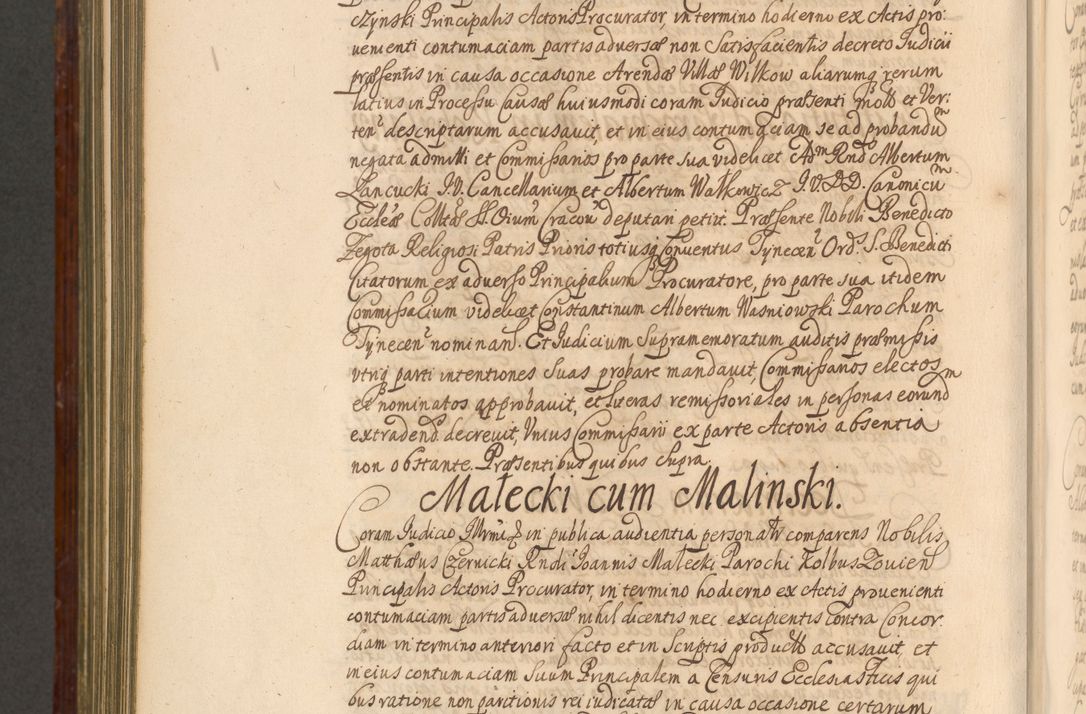 czynski Principalis Actoris Procurator, in termino hodierno ex Actis pro:
venienti contumaciam partis adversæ non Satisfacientis decreto Judicii
præsentis in causa occasione Arendæ Villæ Wilkow aliarumq rerum
latius in Processu Causæ huiusmodi coram Judicio præsenti et Ver:
ten descriptarum accusavit, et in eius contumaciam se ad probandum
negata admitti et Commissarios pro parte sua videlicet Adm Rnd Albertum
Lancucki J.V. Cancellarium et Albertum Wałkowicz J.V.D.D. Canonicum
Eccleæ Colltæ SS. Oium Cracou deputari petiit. Præsente Nobili Benedicto
Zegota Religiosi Patris Prioris totiusq Conventus Tynecen Ord. S. Benedicti
Citatorum ex adverso Principalium Procuratore, pro parte sua itidem
Commissarium videlicet Constantinum Albertum Wasniowski Parochum
Tynecen nominan. Et Judicium Supramemoratum auditis præmissis
vtriq parti intentiones suas probare mandavit, Commissarios electos
et nominatos approbavit, et literas remissoriales in personas eorund
extradend decrevit, Vnius Commissarii ex parte Actoris absentia
non obstante. Præsentibus quibus supra.
Małecki cum Malinski.
Coram Judicio in publica audientia personalr comparens Nobilis
Matthæus Czernicki Rndi Joannis Małecki Parochi Kolbuszovien
Principalis Actoris Procurator, in termino hodierno ex Actis provenienti
contumaciam partis adversæ nihil dicentis nec excipientis contra Concor:
diam in termino anteriori facto et in Scriptis product accusavit, et
in eius contumaciam Suum Principalem a Censuris Ecclesiasticis qui
bus ratione non paritionis rei iudicatæ in causa occasione certarum